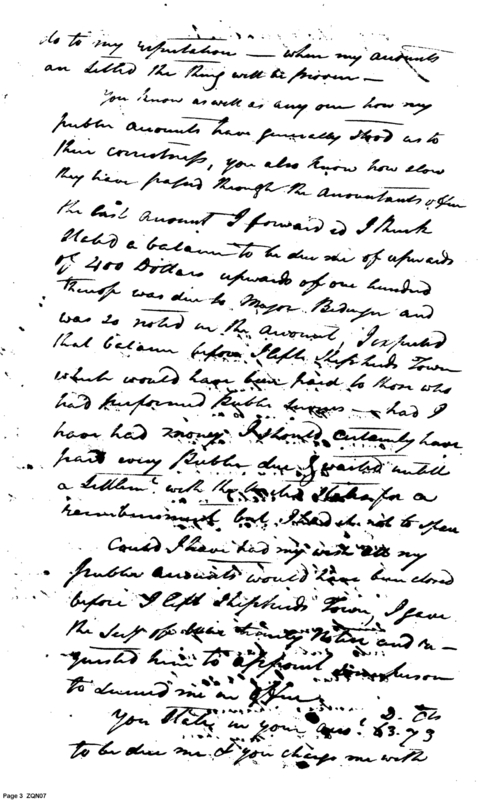 do to my reputation — when my accounts
are settled the thing will be proven —
You know as well as any one how my
public accounts have generally stood as to
their correctness, you also know how slow
they have passed through the Accountants office
the last account I forwarded I think
stated a balance to be due me of upwards
of 400 Dollars upwards of one hundred
thereof was due to Major Bedinger and
was so noted in the account, I expected
that balance before I left Shepherds Town
which would have been paid to those who
had performed Public services — had I
have had money I should certainly have
paid every Public due & waited untill
a Settlemt. with the United States for a
reimbursment but I had it not to spare
Could I have had my wish all my
public accounts would have been closed
before I left Shepherds Town, I gave
the Secy of War timely Notice and re-
quested him to appoint some person
to succeed me in Office
D. Cts
You State in your acct. 63.73
to be due me & you charge me with
Page 3 ZQN07